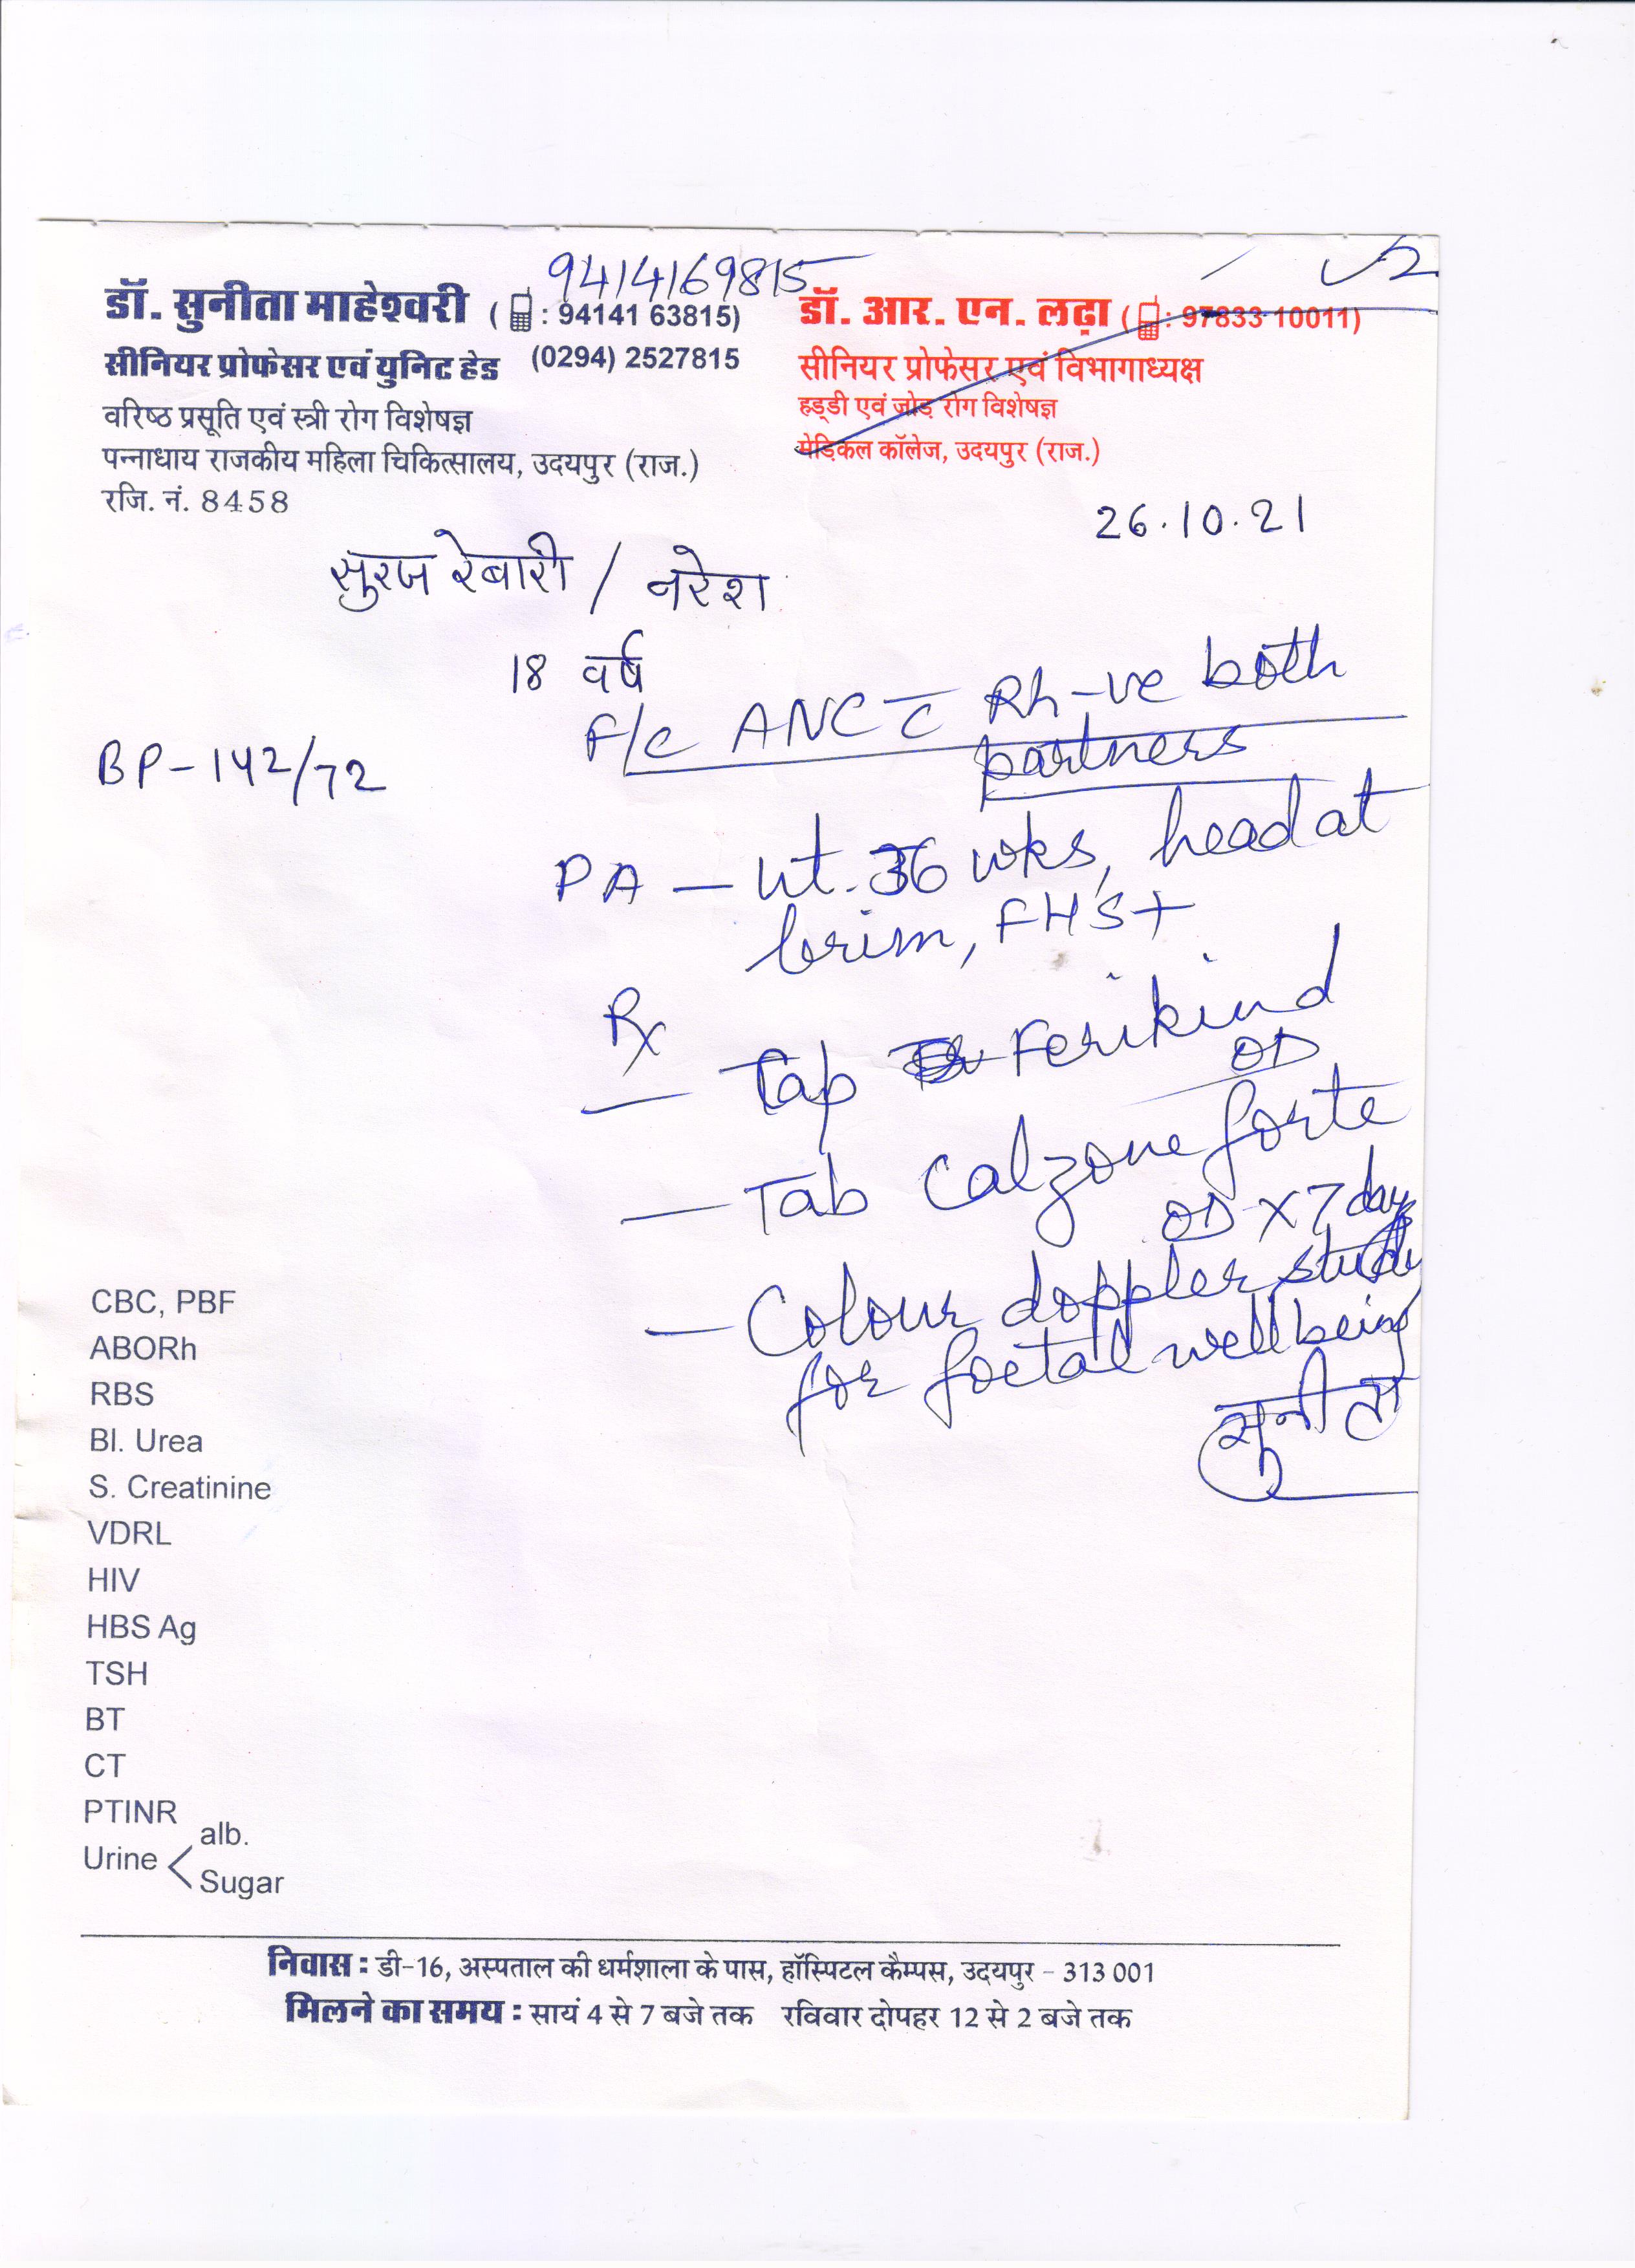 9414169815
डॉ. सुनीता माहेश्वरी ( : 94141 63815)
सीनियर प्रोफेसर एवं युनिट हेड (0294) 2527815
वरिष्ठ प्रसूति एवं स्त्री रोग विशेषज्ञ
पन्नाधाय राजकीय महिला चिकित्सालय, उदयपुर (राज.)
रजि. नं. 8458
डॉ. आर. एन. लढ़ा ( : 97833 10011)
सीनियर प्रोफेसर एवं विभागाध्यक्ष
हड्डी एवं जोड़ रोग विशेषज्ञ
मेडिकल कॉलेज, उदयपुर (राज.)
26.10.21
सुरज रेबारी / नरेश
18 वर्ष
F/c ANC c̅ Rh-ve both
partners
BP-142/72
PA - ut. 36 wks, head at
brim, FHS+
Rx
- Tap Ferikind
OD
- Tab Calzone forte
OD x 7 days
- Colour doppler study
for foetal wellbeing
सुनीता
CBC, PBF
ABORh
RBS
Bl. Urea
S. Creatinine
VDRL
HIV
HBS Ag
TSH
BT
CT
PTINR
Urine < alb.
Sugar
निवास : डी-16, अस्पताल की धर्मशाला के पास, हॉस्पिटल कैम्पस, उदयपुर - 313 001
मिलने का समय : सायं 4 से 7 बजे तक रविवार दोपहर 12 से 2 बजे तक